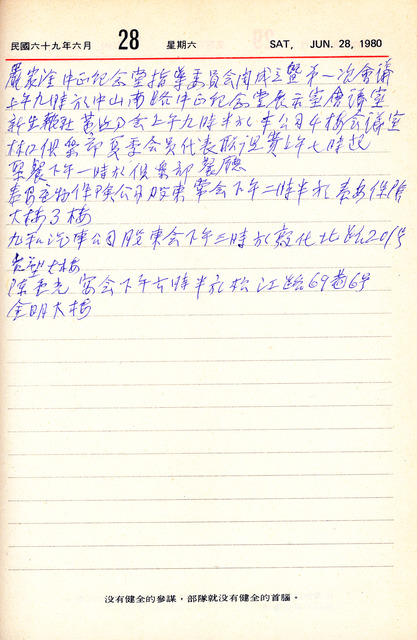 民國六十九年六月 28 星期六 SAT, JUN. 28, 1980
嚴家淦中正紀念堂指導委員會成立暨第一次會議
上午九時於中山南路中正紀念堂展示室會議室
新生報社 上午九時半於本公司4樓會議室
林口俱樂部夏季會員代表聯誼賽上午七時起
聚餐下午一時於俱樂部餐廳
泰安產物保險公司股東常會下午二時半於泰安保險
大樓3樓
九和汽車公司股東會下午三時於敦化北路201号
台塑大樓
宴会下午六時半於松江路69巷6号
金明大樓
没有健全的參謀，部隊就没有健全的首腦。